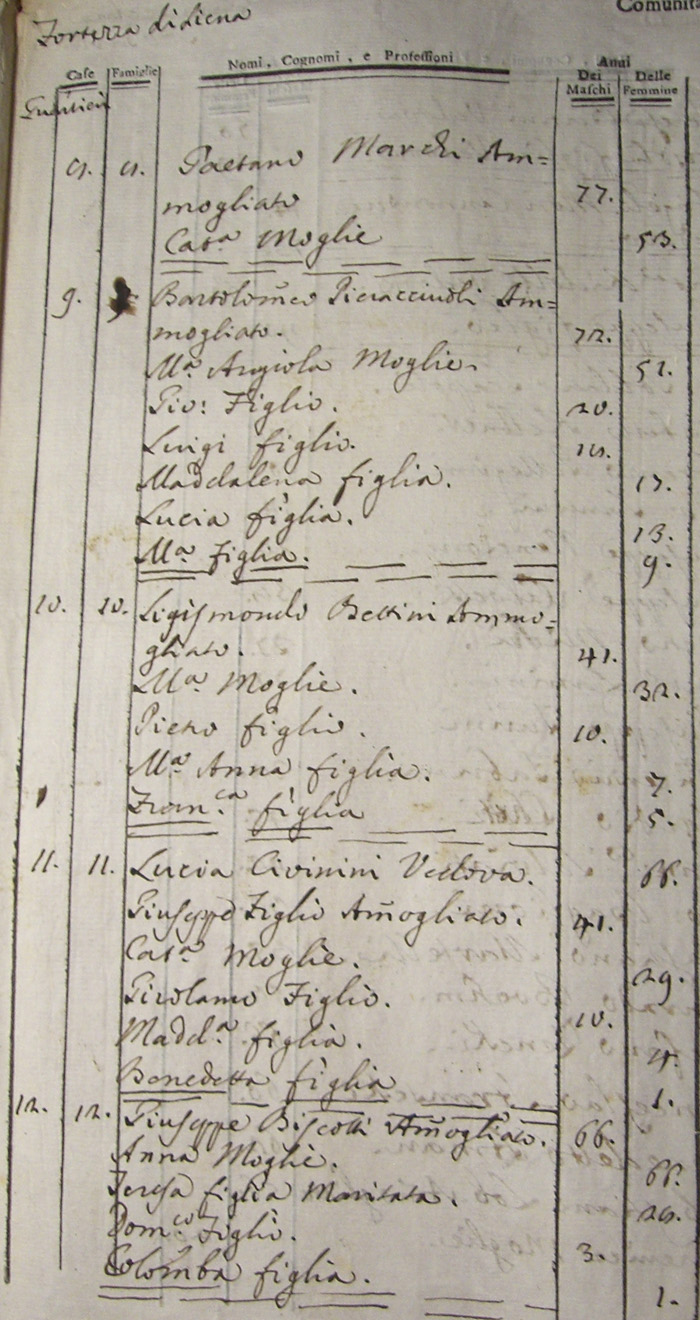 Fortezza di Siena
Comunità
Case Famiglie Nomi, Cognomi, e Professioni Anni Dei Maschi Delle Femmine
8. 8. Gaetano Marchi Am=
mogliato 77.
Cat.a Moglie 53.
9. 9. Bartolomeo Pieraccinoli Am=
mogliato. 72.
M.a Angiola Moglie. 52.
Gio: Figlio. 20.
Luigi figlio. 18.
Maddalena figlia. 17.
Lucia figlia. 13.
M.a Figlia. 9.
10. 10. Sigismondo Bettini Ammo=
gliato. 41.
M.a Moglie. 32.
Pietro figlio. 10.
M.a Anna figlia. 7.
Fran.ca figlia 5.
11. 11. Lucia Civinini Vedova. 66.
Giuseppe Figlio Am̃ogliato. 41.
Cat.a Moglie. 29.
Girolamo Figlio. 10.
Madd.a figlia. 4.
Benedetta figlia 1.
12. 12. Giuseppe Biscotti Am̃ogliato. 66.
Anna Moglie. 66.
Teresa figlia Maritata. 28.
Dom.co Figlio. 3.
Colomba figlia. 1.